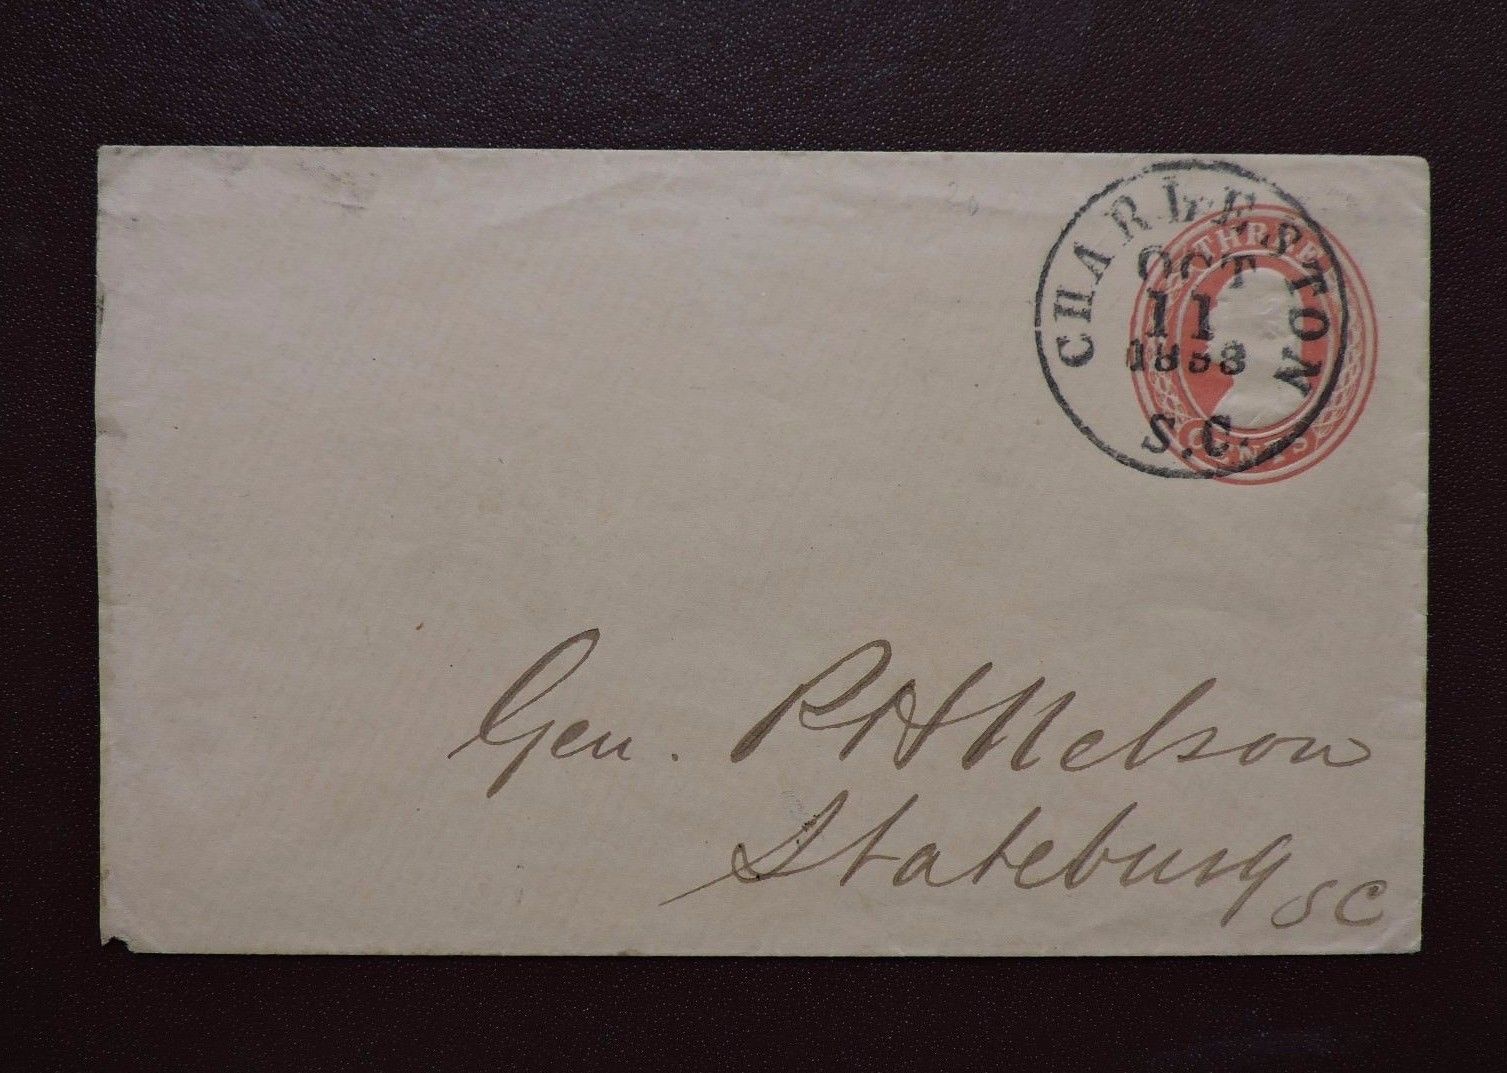 CHARLESTON
OCT
11
1858
S.C.
THREE
CENTS
Gen. P H Nelson
Stateburg
SC